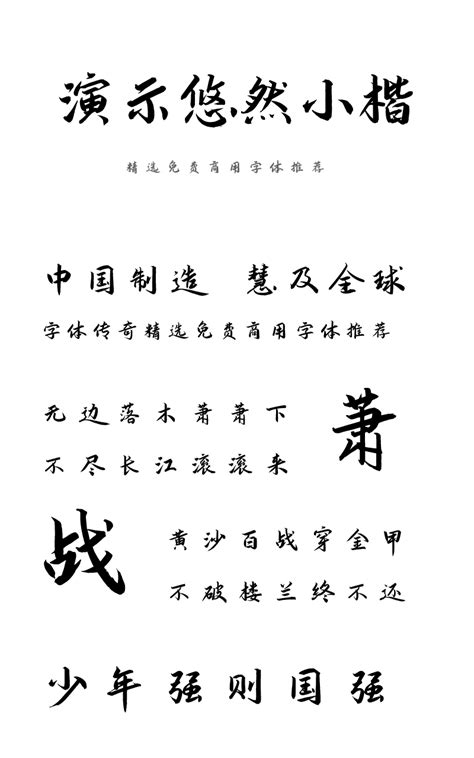 演示悠然小楷
精选免费商用字体推荐
中国制造 慧及全球
字体传奇精选免费商用字体推荐
无边落木萧萧下
不尽长江滚滚来
萧
战
黄沙百战穿金甲
不破楼兰终不还
少年强则国强